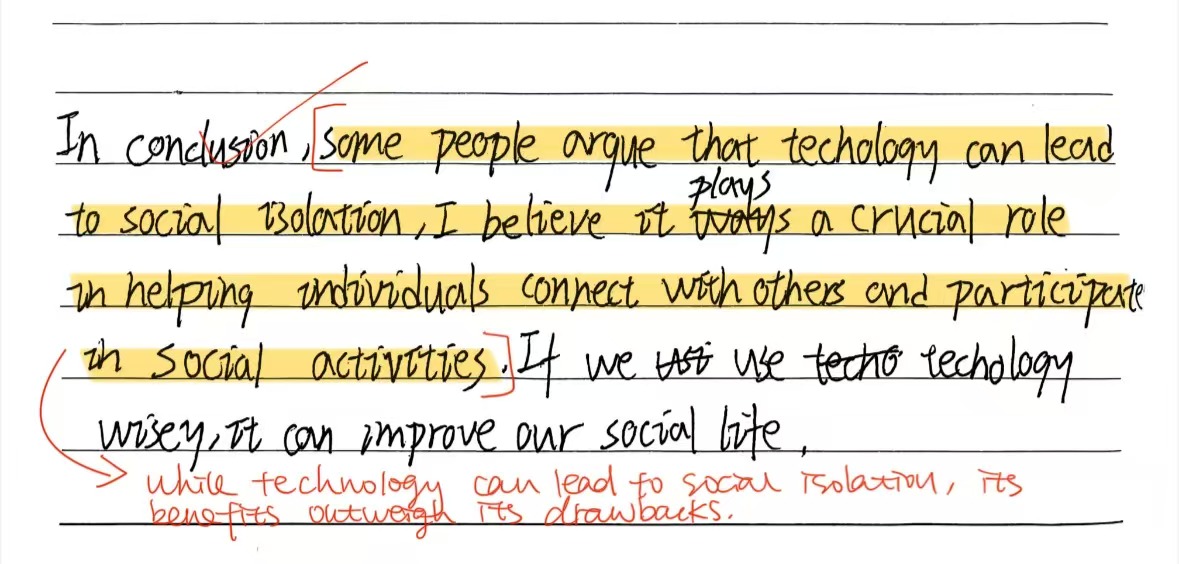 In conclusion, some people argue that techology can lead
to social isolation, I believe it plays a crucial role
in helping individuals connect with others and participate
in social activities. If we use techology
wisey, it can improve our social life.
while technology can lead to social isolation, its
benefits outweigh its drawbacks.